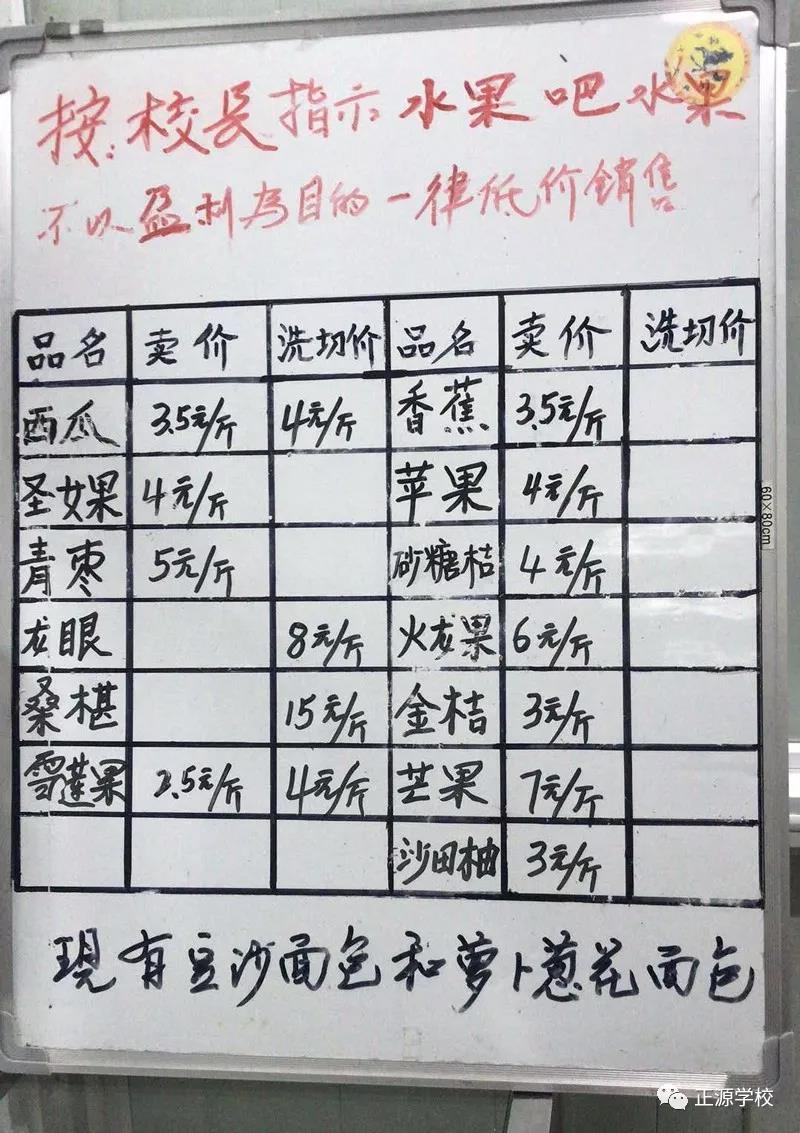 按：校长指示水果吧水果
不以盈利为目的一律低价銷售
品名 卖价 洗切价 品名 卖价 洗切价
西瓜 3.5元/斤 4元/斤 香蕉 3.5元/斤
圣女果 4元/斤 苹果 4元/斤
青枣 5元/斤 砂糖桔 4元/斤
龙眼 8元/斤 火龙果 6元/斤
桑椹 15元/斤 金桔 3元/斤
雪莲果 2.5元/斤 4元/斤 芒果 7元/斤
沙田柚 3元/斤
現有豆沙面包和萝卜葱花面包
60×80cm
正源学校